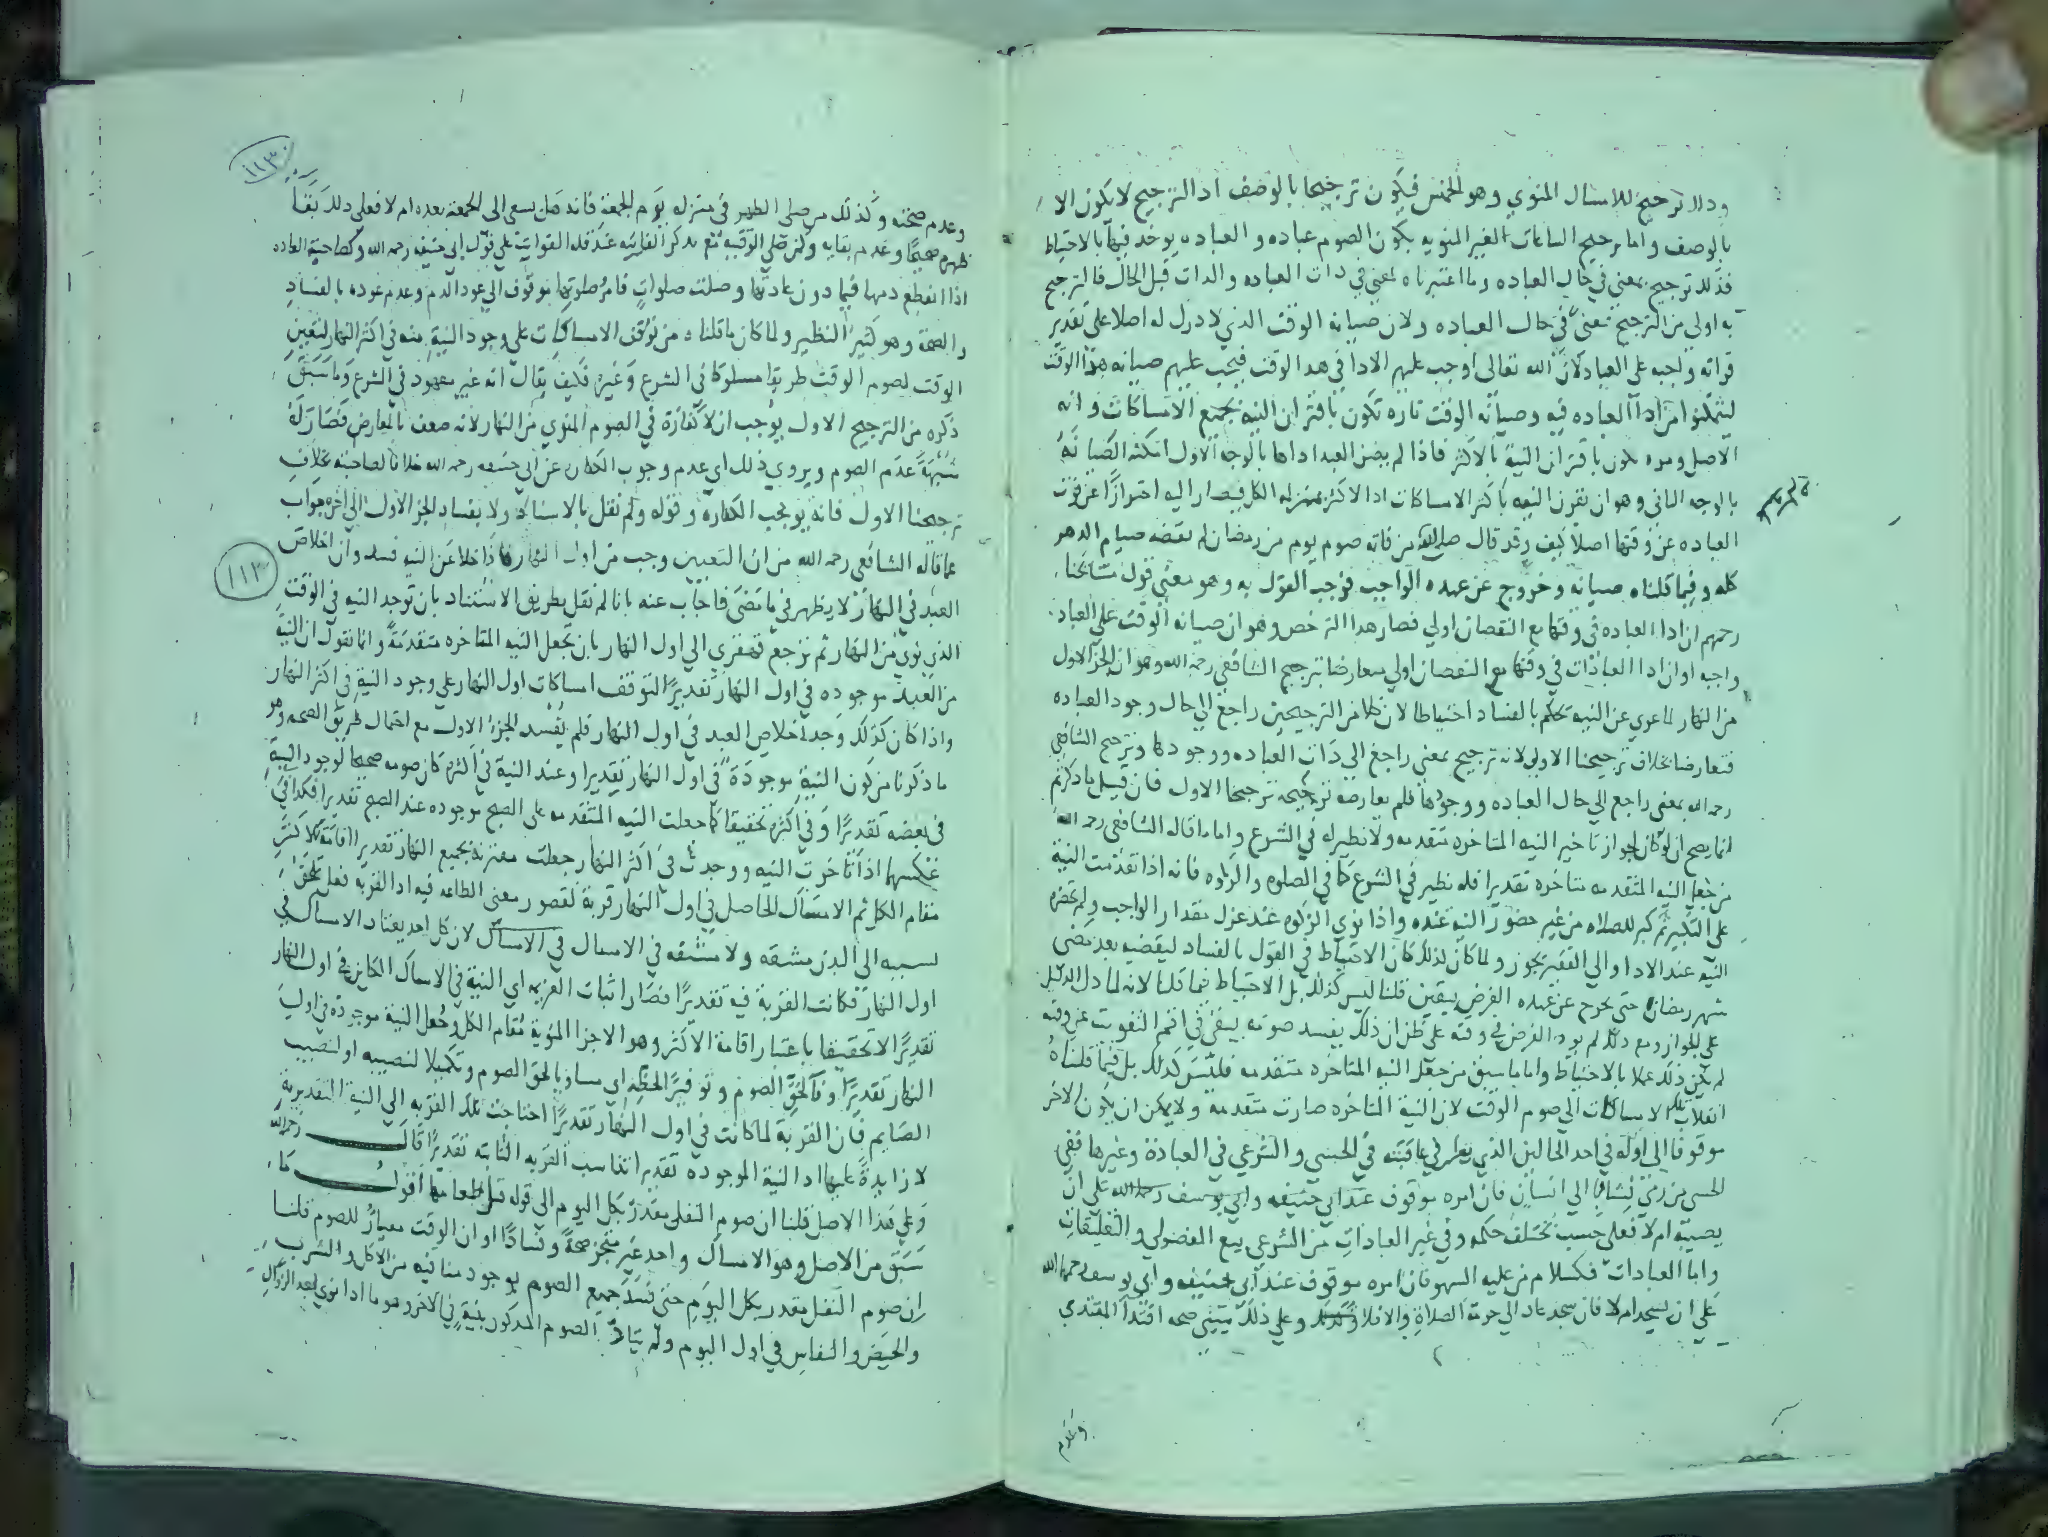 وذلك ترجيح للامساك المنوي وهو الجنس فيكون ترجيحا بالوصف اذ الترجيح لا يكون الا
بالوصف واما ترجيح الساعات الغير المنويه بكون الصوم عباده و العباده يوخذ فيها بالاحتياط
فذلك ترجيح بمعني في حال العباده وما اعتبرناه لمعني في ذات العباده والذات قبل الحال فالترجيح
به اولى من الترجيح بمعنى في حال العباده ولان صيانه الوقت الذي لا درك له اصلا على تقدير
فواته واجبه على العباد لان الله تعالى اوجب عليهم الادا في هدا الوقت فيجب عليهم صيانه هذا الوقت
ليتمكنوا من ادآ العباده فيه وصيانه الوقت تاره تكون باقتران النية بجميع الامساكات وانه
الاصل ومره يكون باقتران النية بالاكثر فاذا لم يضن العبد اداها بالوجه الاول امكنه الصيانة
بالوجه الثانى وهو ان تقرن النيه باكثر الامساكات اذ الاكثر بمنزله الكل فيصار اليه احترازا عن فوت
العباده عن وقتها اصلا كيف وقد قال صلى الله من فاته صوم يوم من رمضان لم يقضه صيام الدهر
كله وفيما قلناه صيانه وخروج عن عهده الواجب فوجب القول به وهو معنى قول مشايخنا
رحمهم ان ادا العباده في وقتها مع النقصان اولي فصار هدا الترخص وهو ان صيانه الوقت على العباد
واجبه او ان ادا العبادات في وقتها مع النقصان اولي معارضا بترجيح الشافعي رحمه الله وهو ان الجزا الاول
من النهار لما عري عن النيه حكم بالفساد احتياطا لان كلا من الترجيحين راجع الي حال وجود العباده
فتعارضا بخلاف ترجيحنا الاول لانه ترجيح بمعنى راجع الى ذات العباده ووجودها وترجيح الشافعي
رحمه الله بمعني راجع الي حال العباده ووجودها فلم يعارضه ترجيحه ترجيحنا الاول فان قيل ما ذكرتم
انما يصح ان لو كان لجواز تاخير النيه المتاخره متقدمه ولا نظير له في الشرع واما ما قاله الشافعي رحمه الله
من جعل النيه المتقدمه متاخره تقديرا فله نظير في الشرع كما في الصلوه والزكوه فانه اذا تقدمت النية
على التكبير ثم كبر للصلاه من غير حضور النيه عنده واذا نوي الزكوه عند عزل مقدار الواجب ولم تحضره
النيه عند الادا والي الفقير يجوز ولما كان لذلك كان الاحتياط في القول بالفساد ليقضيه بعد مضى
شهر رمضان حتى يخرج عن عهده الفرض بيقين قلنا ليس كذلك بل الاحتياط فيما قلنا لانه لما دل الدليل
على الجواز ومع ذلك لم يود الفرض في وقته على ظن ان ذلك يفسد صومه يبقى في اثم التفويت عن وقته
لم يكن ذلك عملا بالاحتياط واما ما سبق من جعل النيه المتاخره متقدمه فليس كذلك بل فيما قلناه
انقلاب تلك الامساكات الي صوم الوقت لا ان النية المتاخره صارت متقدمه ولا يمكن ان يكون الاخر
موقوفا الى اوله في احد الحالين الذي يظهر في عاقبته في الحسي والشرعي في العبادة وغيرها ففي
الحسي من رمى نشابا الي انسان فان امره موقوف عند ابي حنيفه وابي يوسف رحمهما الله على ان
يصيبه ام لا فعلي حسب يختلف حكمه وفي غير العبادات من الشرعي بيع الفضولي والتعليقات
واما العبادات فكسلام من عليه السهو فان امره موقوف عند ابي حنيفه وابي يوسف رحمهما الله
على ان يسجد ام لا فان سجد عاد الي حرمة الصلاة والا فلا وعلي ذلك يبتني صحه اقتدآ المقتدي
وعدم
١١٣
وعدم صحته وكذلك من صلى الظهر في منزله يوم الجمعة فانه هل يسعى الى الجمعة بعده ام لا فعلي ذلك بقا
ظهره صحيحا وعدم بقايه وكمن صلى الوقتيه مع تذكر الفائته عند قله الفوايت على قول ابي حنيفه رحمه الله وكصاحبة العاده
اذا انقطع دمها فيما دون عادتها وصلت صلوات فامر صلوتها موقوف الي عود الدم وعدم عوده بالفساد
والصحة وهو كثير النظير ولما كان ما قلناه من توقف الامساكات على وجود النية منه في اكثر النهار لتعين
الوقت لصوم الوقت طريقا مسلوكا في الشرع وغيره فكيف يقال انه غير معهود في الشرع وما سبق
ذكره من الترجيح الاول يوجب ان لا كفارة في الصوم المنوي من النهار لانه ضعف بالمعارض فصار له
شبهة عدم الصوم ويروي ذلك اي عدم وجوب الكفاره عن ابي حنيفه رحمه الله خلافا لصاحبيه بخلاف
ترجيحنا الاول فانه يوجب الكفارة وقوله ولم نقل بالاستناد ولا بفساد الجز الاول الي اخره جواب
عما قاله الشافعي رحمه الله من ان التعيين وجب من اول النهار فاذا خلا عن النيه فسد وان اخلاص
العبد في النهار لا يظهر في ما مضى فاجاب عنه بانا لم نقل بطريق الاستناد بان توجد النيه في الوقت
١١٣
الذي نوي من النهار ثم ترجع قهقري الي اول النهار بان تجعل النيه المتاخره متقدمة وانما نقول ان النية
من العبد موجوده في اول النهار تقديرا لتوقف امساكات اول النهار علي وجود النية في اكثر النهار
واذا كان كذلك وجد اخلاص العبد في اول النهار فلم يفسد الجزء الاول مع احتمال طريق الصحه وهو
ما ذكرنا من كون النية موجودة في اول النهار تقديرا وعند النية في اكثره كان صومه صحيحا لوجود النية
في بعضه تقديرا وفي اكثره تحقيقا كما جعلت النيه المتقدمه على الصبح موجوده عند الصبح تقديرا فكذا في
عكسها اذا تاخرت النيه ووجدت في اكثر النهار جعلت مقترنة بجميع النهار تقديرا اقامة للاكثر
مقام الكل ثم الامساك الحاصل في اول النهار قربة لقصور معنى الطاعه فيه اذ القربه فعل يلحق
لسببه الى البدن مشقه ولا مشقه في الامساك في الامساك لان كل احد يعتاد الامساك في
اول النهار فكانت القربة فيه تقديرا فصار اثبات العزيمه اي النية في الامساك الكاين في اول النهار
تقديرا لا تحقيقا باعتبار اقامة الاكثر وهو الاجزا المنوية مقام الكل وجعل النية موجودة في اول
النهار تقديرا وفا لحق الصوم وتوفيرا لحظه اي مساويا لحق الصوم وتكميلا لنصيبه او لنصيب
الصايم فان القربة لما كانت في اول النهار تقديرا احتاجت تلك القربه الي النية التقديرية
لا زايدة عليها اذ النية الموجوده تقديرا تناسب القربه الثابته تقديرا قال رحمه الله
وعلي هذا الاصل قلنا ان صوم النفل مقدر بكل اليوم الى قوله قبل طعامها اقول ما
سبق من الاصل وهو الامساك واحد غير متجز صحة وفسادا او ان الوقت معيار للصوم قلنا
ان صوم النفل مقدر بكل اليوم حتى فسد جميع الصوم بوجود منافيه من الاكل والشرب
والحيض والنفاس في اول اليوم ولم يتاد الصوم المذكور بنية في الاخر وهو ما اذا نوي بعد الزوال